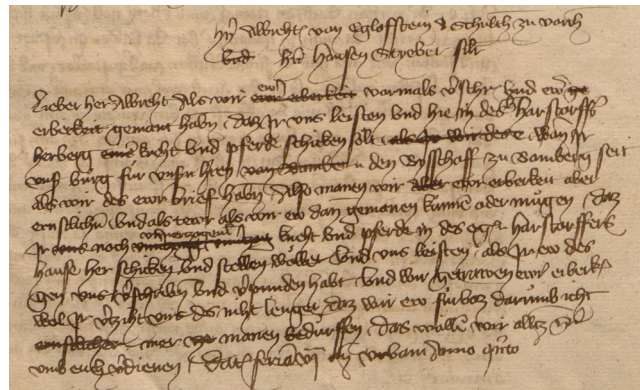 hern Albrecht von Egloffstein Schulth zu vorch
und hern hansen Stober
Lieber her Albrecht Als wir ewer vormals verschr und ewr
erberkeit gemant habn daz Ir uns leisten und hie in des harstorffers
herberg knecht und pferde schicken solt wan Ir
unser burg fur unsern hern den Bysschaff zu Bamberg seit
als wir des ewr brief haben Also manen wir ewr erberkeit aber
ernstlichen und als tewr als wir ew dan gemanen kunnen oder mugen daz
Ir noch unverzogenlich knecht und pferde in des harstorffers
hause her schicken und stellen wollet und uns leisten als Ir ew des
gen uns verschriben und verpunden habt und wir getrawen ewr erberkeit
wol Ir verziht uns des niht lenger daz wir ew furbaz darumb iht
mer manen bedurffen das wollen wir
umb euch verdienen Dat feria vi Urbani Anno